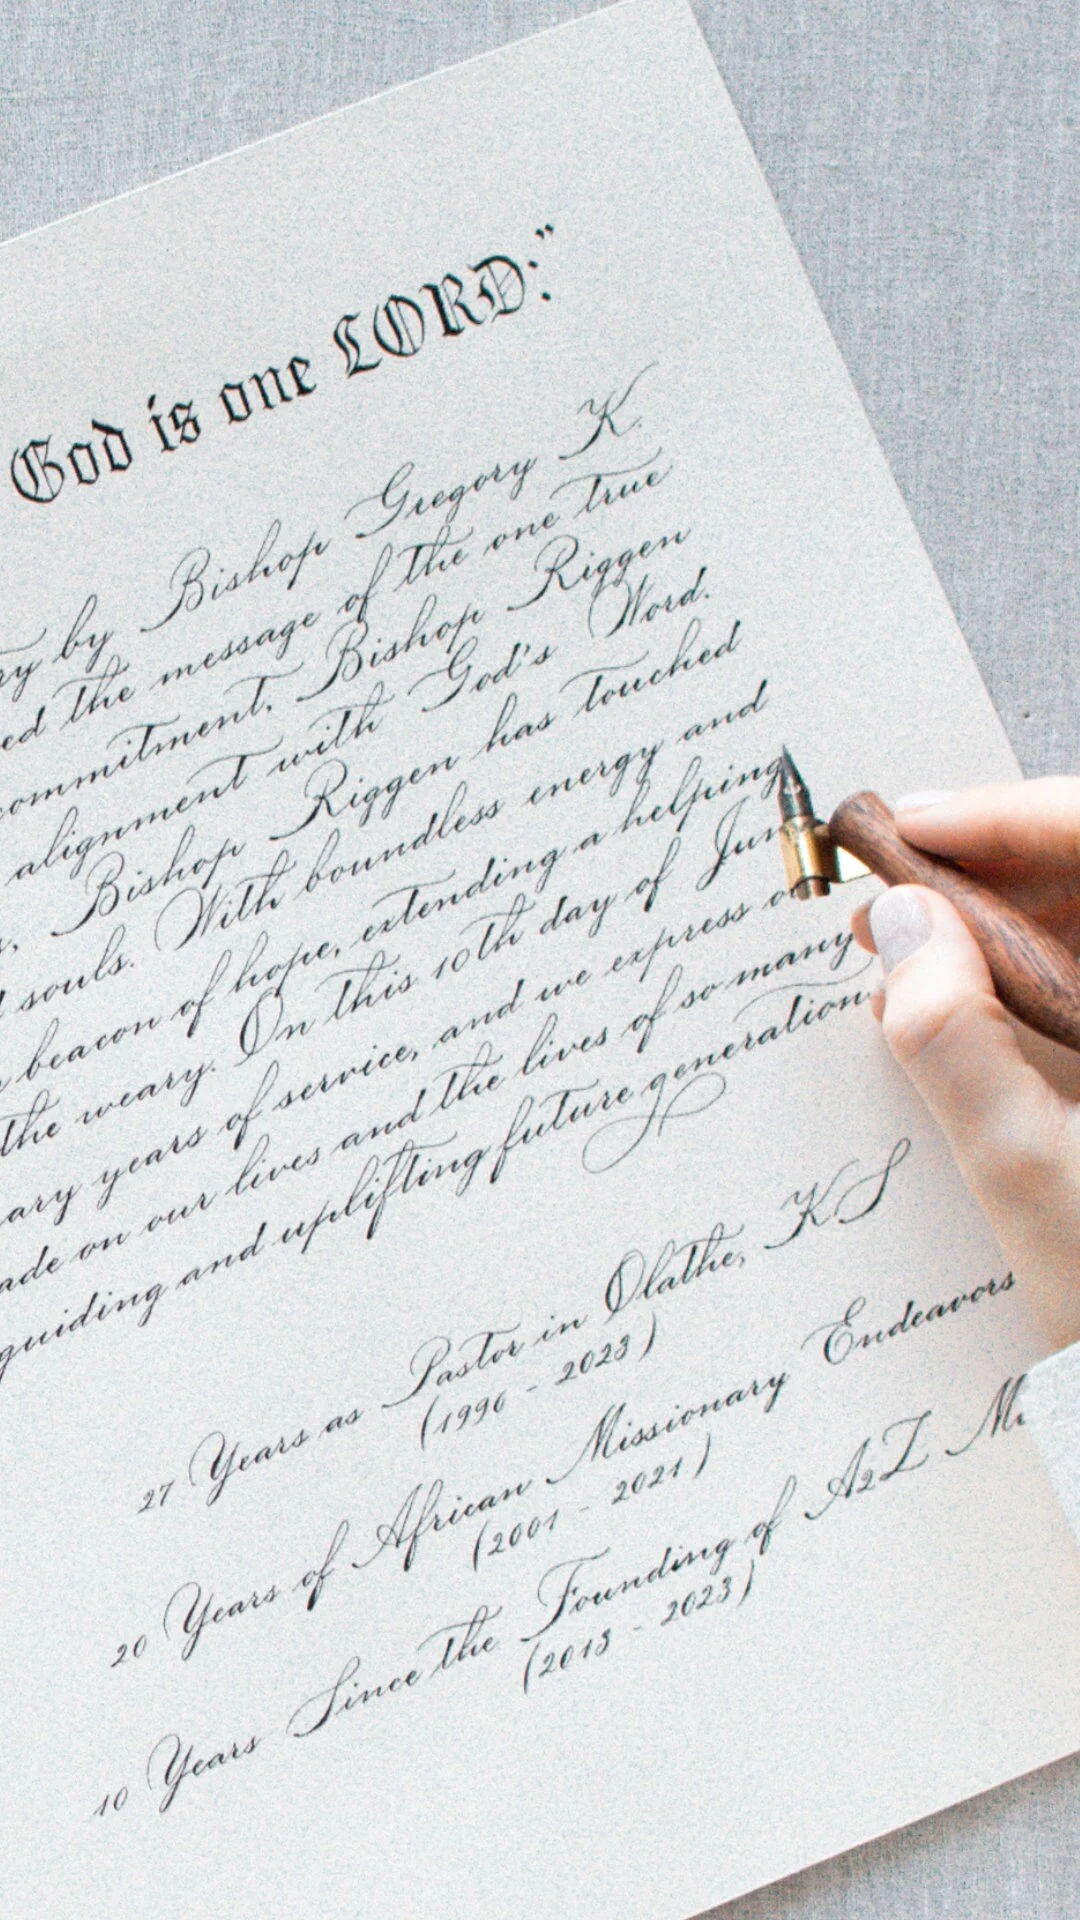 God is one LORD:"
ry by Bishop Gregory K.
ed the message of the one true
commitment, Bishop Riggen
alignment with God's Word.
s, Bishop Riggen has touched
souls. With boundless energy and
beacon of hope, extending a helping
the weary. On this 10th day of Jun
ary years of service, and we express o
ade on our lives and the lives of so many
guiding and uplifting future generation
27 Years as Pastor in Olathe, KS
(1996 - 2023)
20 Years of African Missionary Endeavors
(2001 - 2021)
10 Years Since the Founding of A2Z Mi
(2013 - 2023)